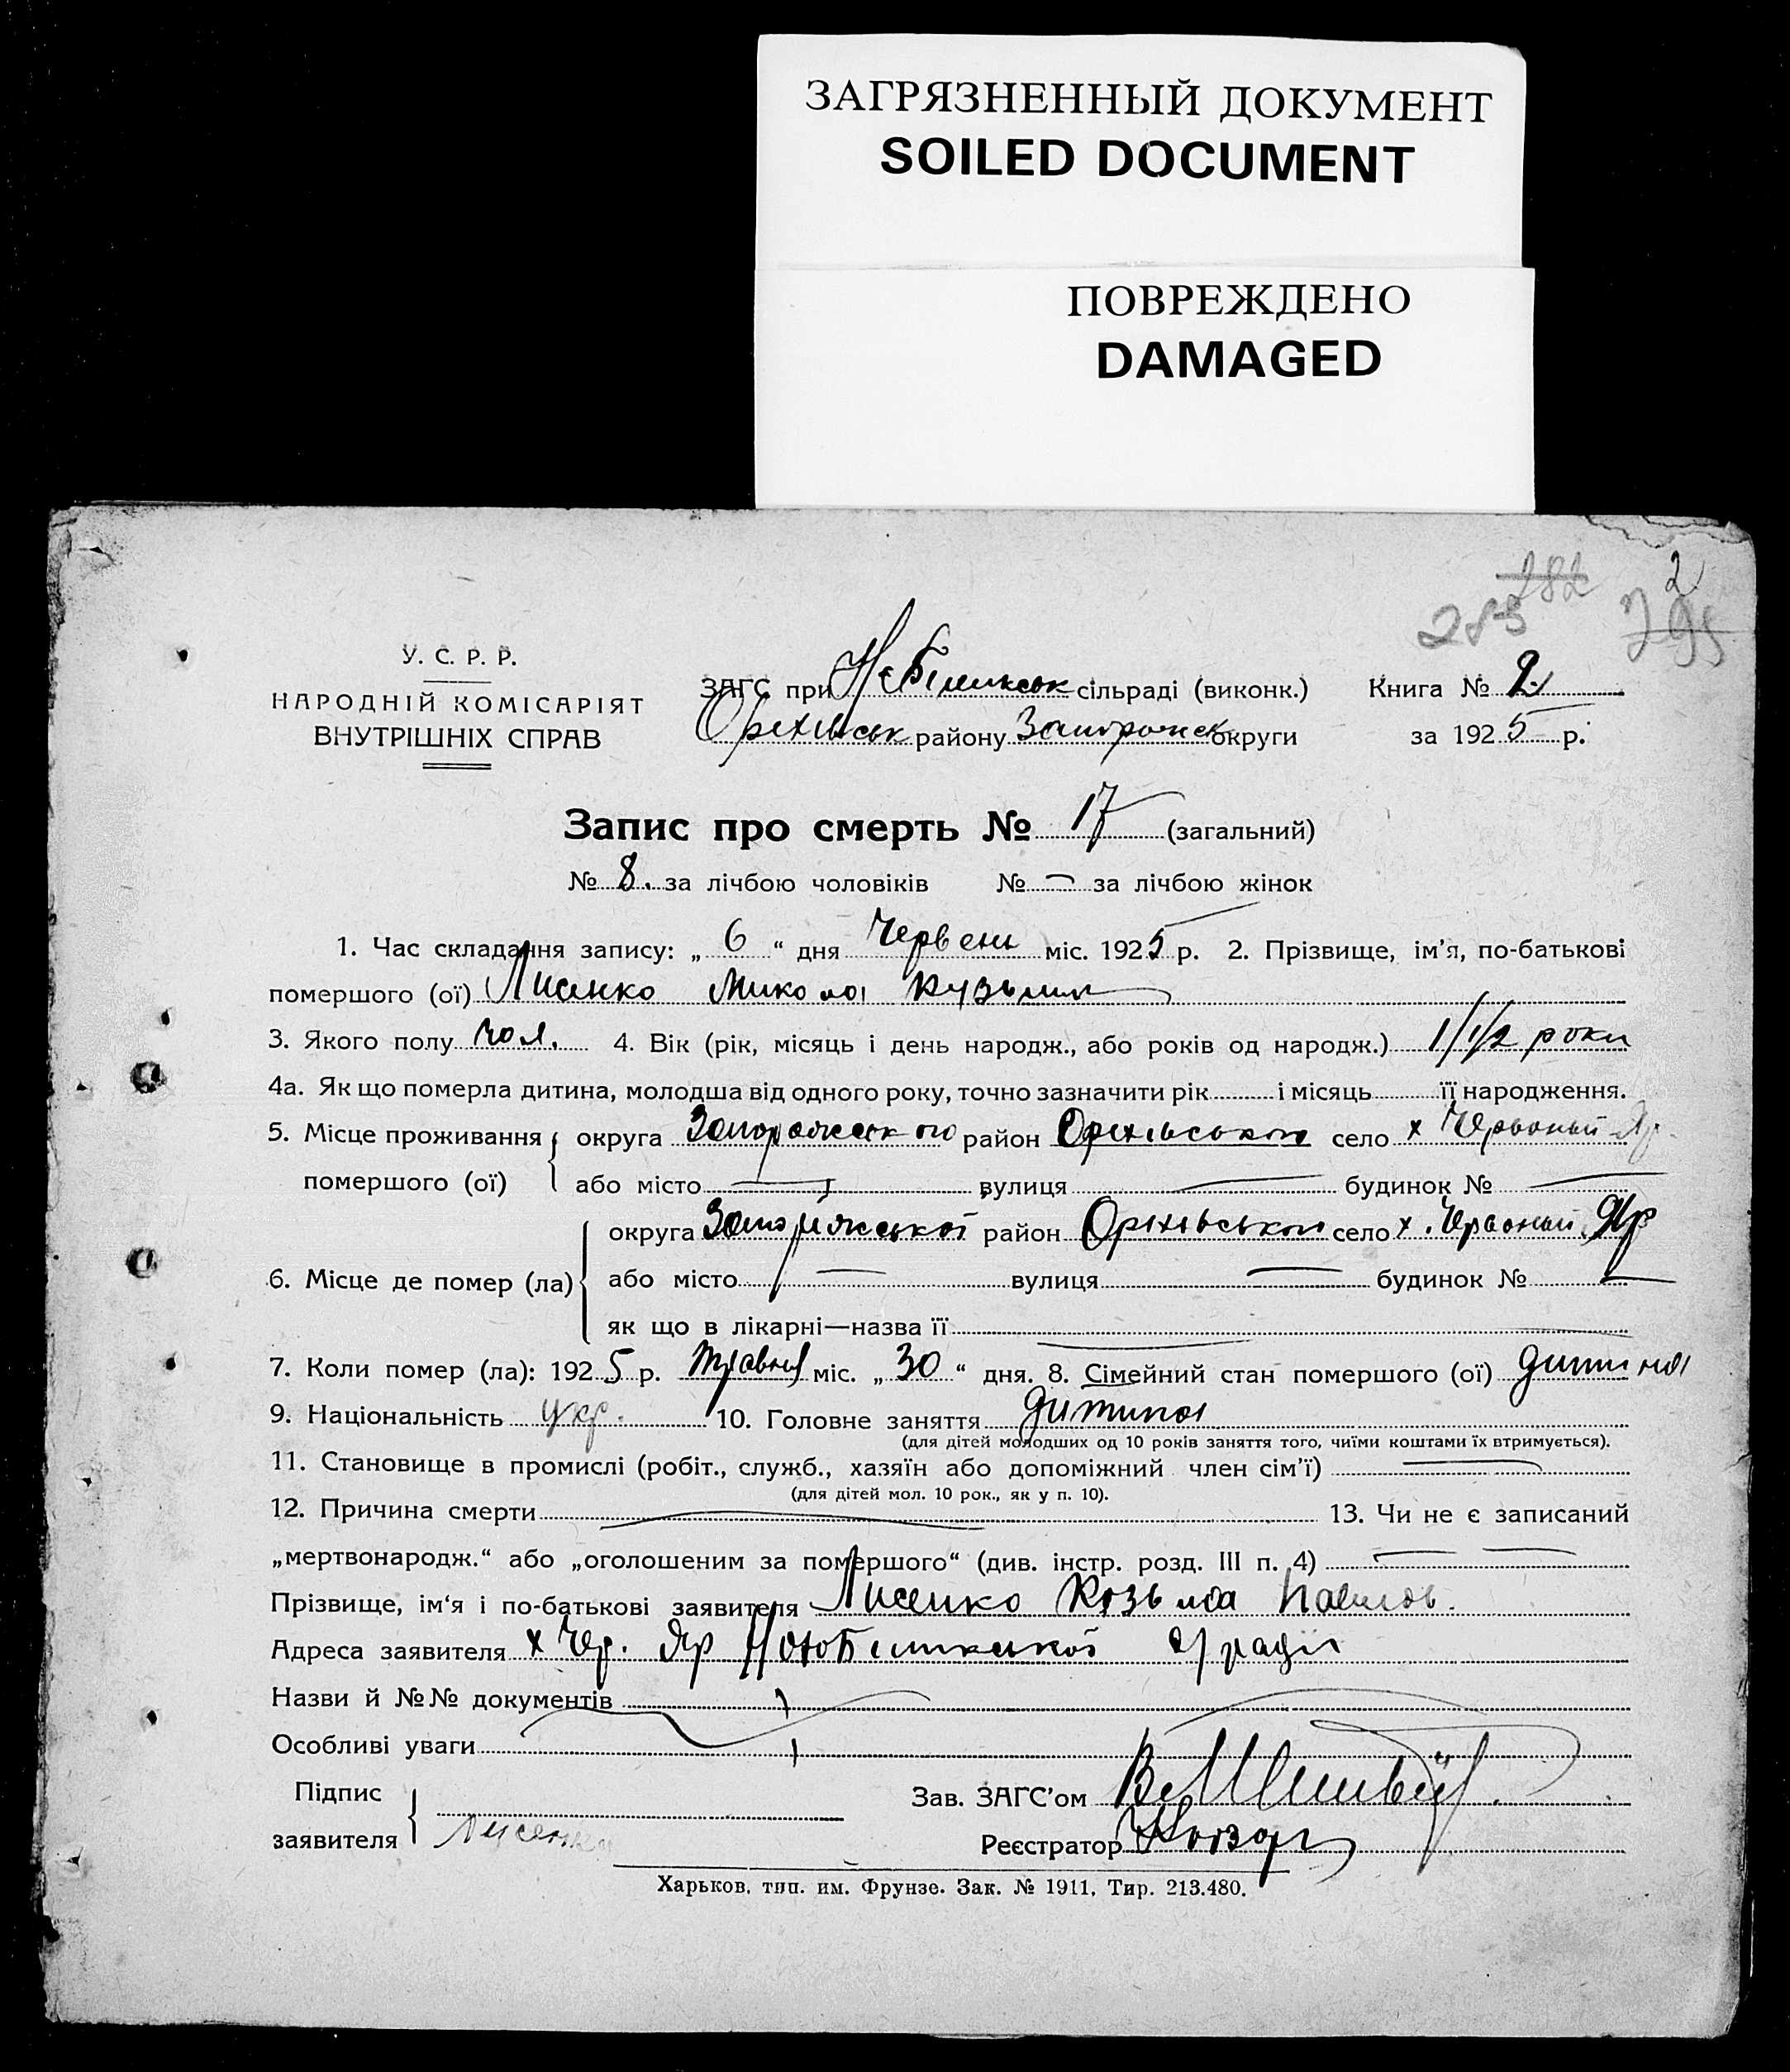 ЗАГРЯЗНЕННЫЙ ДОКУМЕНТ
SOILED DOCUMENT
ПОВРЕЖДЕНО
DAMAGED
282 2
283 795
У. С. Р. Р.
НАРОДНІЙ КОМІСАРІЯТ
ВНУТРІШНІХ СПРАВ
ЗАГС при сільраді (виконк.) Книга № 2
Оріхівськ району Запорожск округи за 1925 р.
Запис про смерть № 17 (загальний)
№ 8. за лічбою чоловіків № — за лічбою жінок
1. Час складання запису: „ 6 “ дня Червень міс. 1925 р. 2. Прізвище, ім’я, по-батькові
помершого (ої) Лисенко Микола Кузьмич
3. Якого полу чол. 4. Вік (рік, місяць і день народж., або років од народж.) 1 1/2 роки
4а. Як що померла дитина, молодша від одного року, точно зазначити рік і місяць її народження.
5. Місце проживання округа район Оріхівського село х Червоный Яр
помершого (ої) або місто — вулиця — будинок № —
округа Запоріжської район Оріхівського село х. Червоный Яр
6. Місце де помер (ла) або місто — вулиця — будинок № —
як що в лікарні—назва її —
7. Коли помер (ла): 1925 р. Травня міс. „ 30 “ дня. 8. Сімейний стан помершого (ої) дитина
9. Національність укр. 10. Головне заняття дитина
(для дітей молодших од 10 років заняття того, чиїми коштами їх втримується).
11. Становище в промислі (робіт., служб., хазяїн або допоміжний член сім’ї) —
(для дітей мол. 10 рок., як у п. 10).
12. Причина смерти — 13. Чи не є записаний
„мертвонародж.“ або „оголошеним за помершого“ (див. інстр. розд. III п. 4) — —
Прізвище, ім‘я і по-батькові заявителя Лисенко Козьма Павлов.
Адреса заявителя х Чер. Яр с/ради
Назви й №№ документів
Особливі уваги
Підпис
заявителя Лисенко
Зав. ЗАГС’ом
Реєстратор
Харьков, тип. им. Фрунзе. Зак. № 1911, Тир. 213.480.